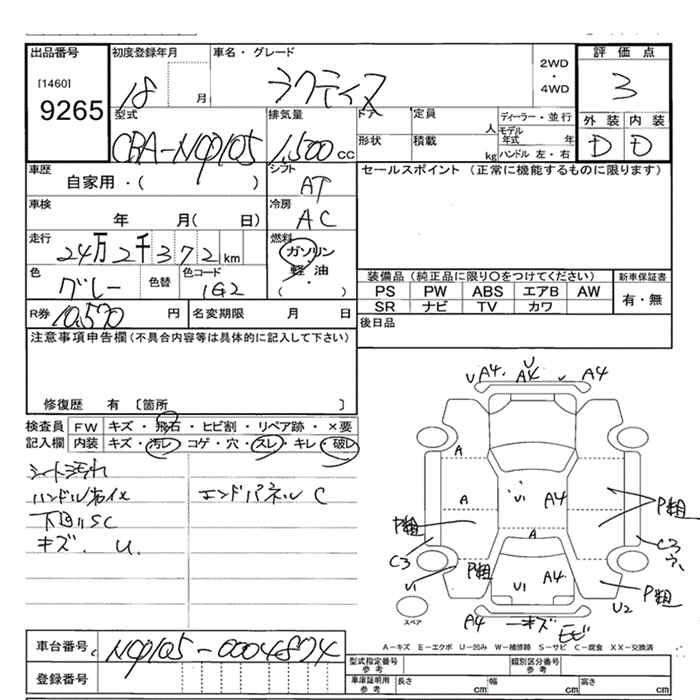 出品番号 初度登録年月 車名・グレード 2WD・4WD 評価点
[1460] 9265 18 月 ラクティス 3
型式 排気量 ドア 定員 人 ディーラー・並行 外装 内装
CBA-NCP105 1,500 CC 形状 積載 kg モデル年式 年 ハンドル 左・右 D D
車歴 シフト セールスポイント (正常に機能するものに限ります)
自家用・( ) AT
車検 冷房
年 月( 日) AC
走行 燃料
24万2千372km ガソリン・軽・油
色 色替 色コード ( )
グレー 1G2
装備品(純正品に限り○をつけてください) 新車保証書
PS PW ABS エアB AW 有・無
SR ナビ TV カワ
R券 10,570 円 名変期限 月 日 後日品
注意事項申告欄(不具合内容等は具体的に記入して下さい)
修復歴 有 〔箇所 〕
検査員 FW キズ・飛石・ヒビ割・リペア跡・×要
記入欄 内装 キズ・汚レ・コゲ・穴・スレ・キレ・破レ
シート汚れ
エンドパネル C
下回りSC
キズ. U.
U A4. U A4 A4
A
A U1 A4 P粗
P粗 A
C3 C3
U1 P粗 U1 A4 P粗 U2
スペア A4 キズ
A-キズ E-エクボ U-凹み W-補修跡 S-サビ C-腐食 XX-交換済
車台番号 NCP105-0004874
登録番号
型式指定番号 参考 類別区分番号 参考
車庫証明用 参考 長さ cm 幅 cm 高さ cm